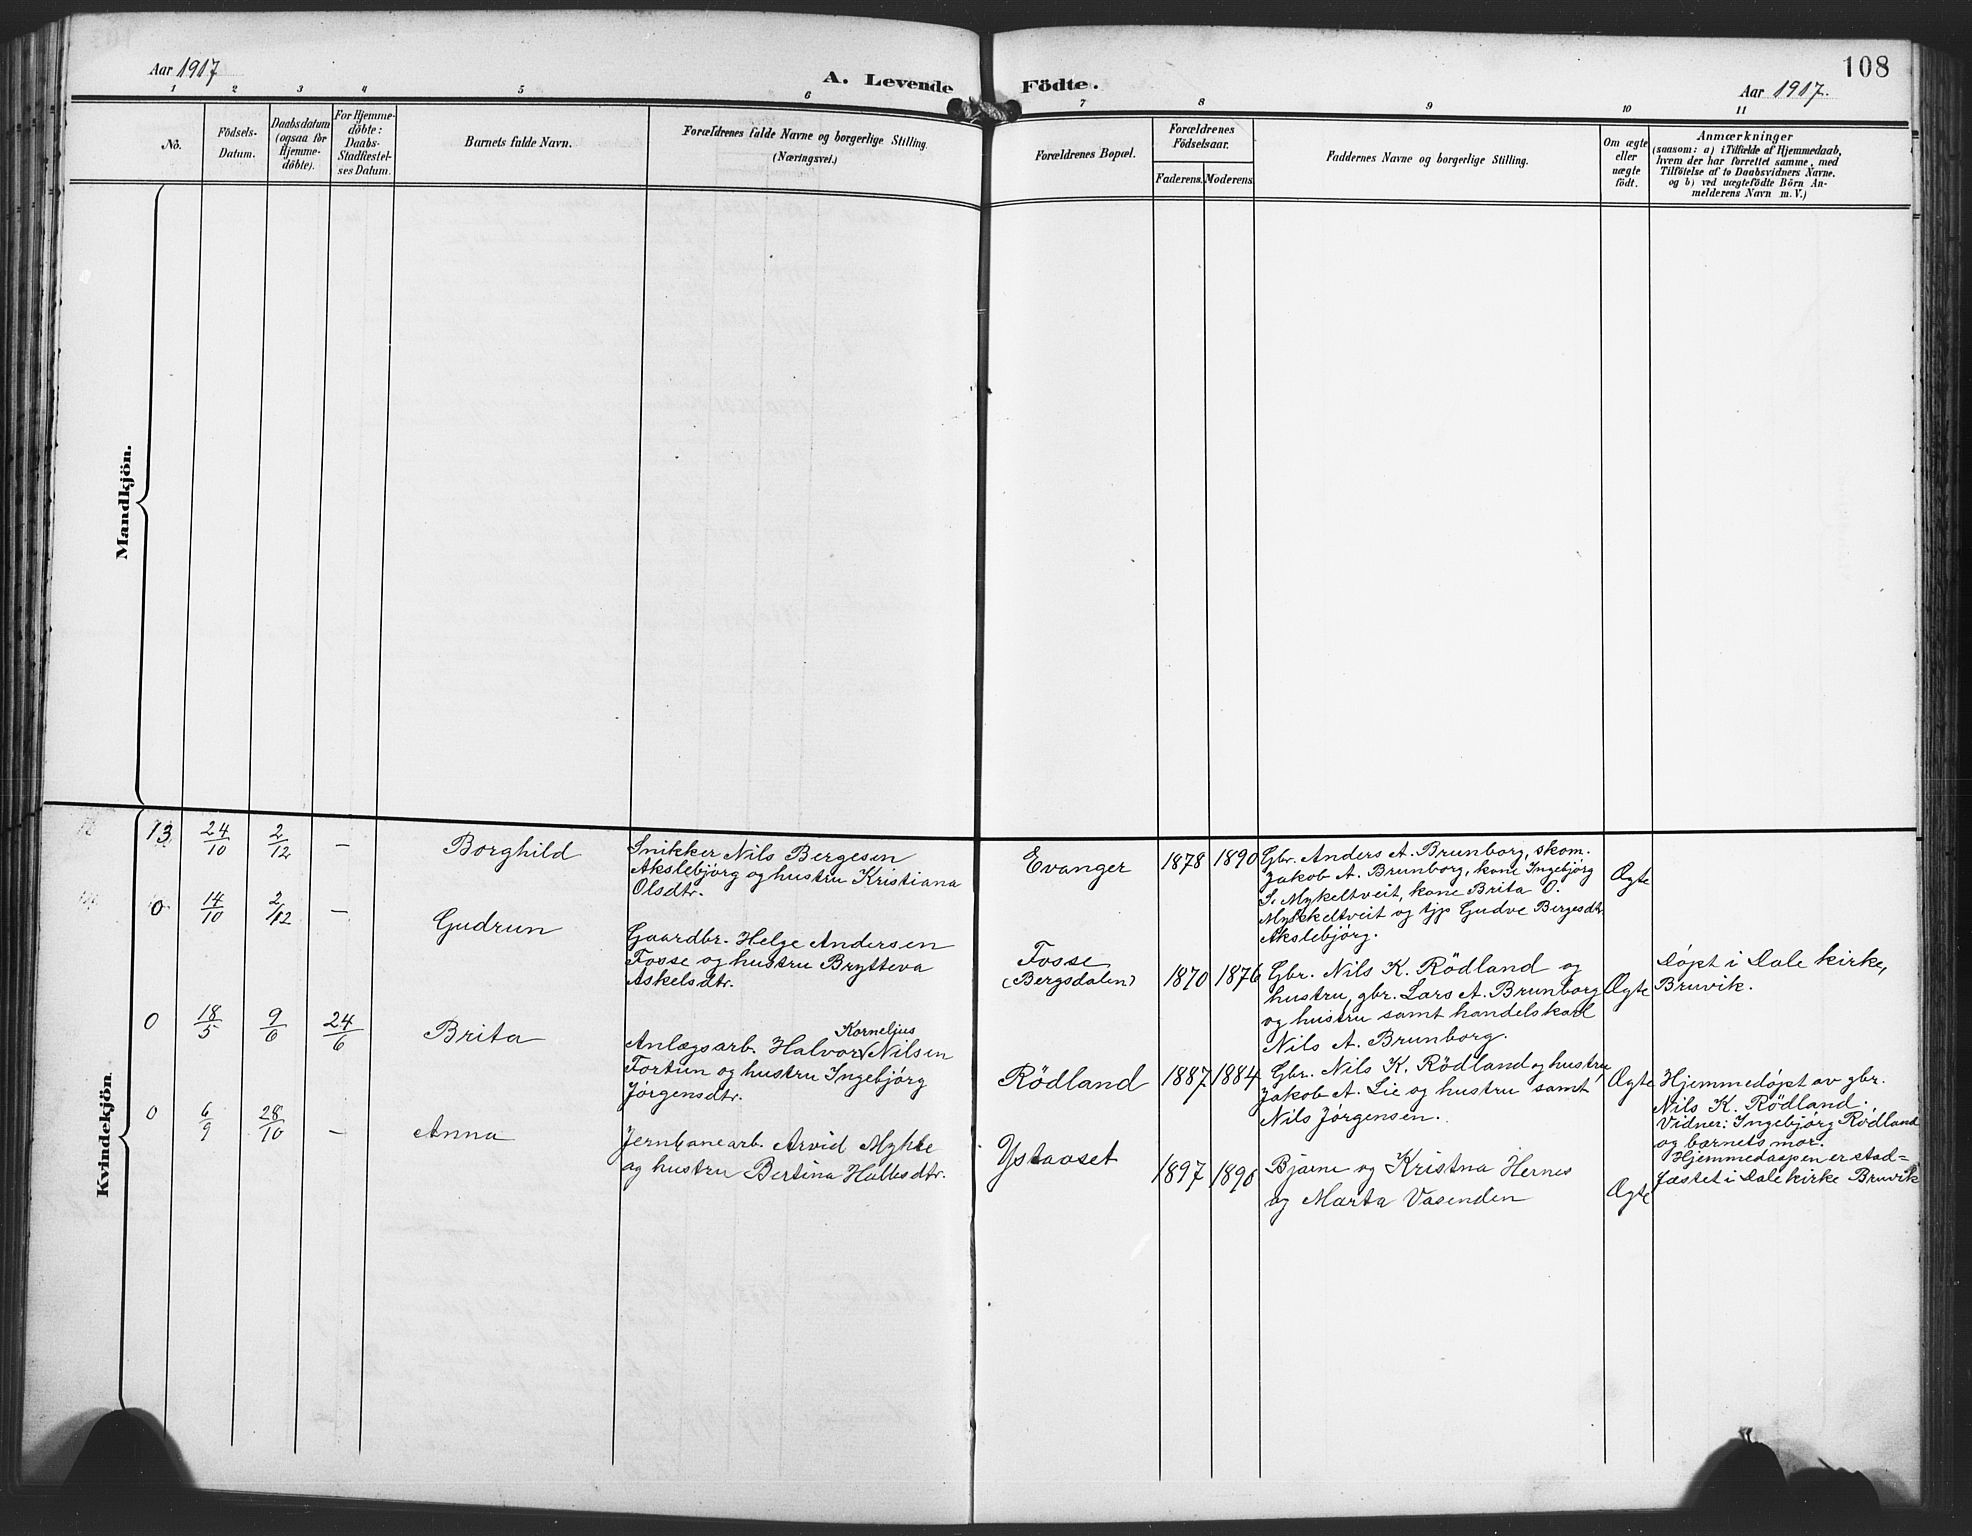 Aar 1917
A. Levende Födte.
Aar 1917.
108
1 2 3 4 5 6 7 8 9 10 11
No.
Födsels-
Datum.
Daabsdatum
(ogsaa for
Hjemme-
döbte).
For Hjemme-
döbte:
Daabs-
Stadfæstel-
ses Datum.
Barnets fulde Navn.
Forældrenes fulde Navne og borgerlige Stilling.
(Næringsvei.)
Forældrenes Bopæl.
Forældrenes
Födselsaar.
Faderens.
Moderens.
Faddernes Navne og borgerlige Stilling.
Om ægte
eller
uægte
födt.
Anmærkninger
(saasom: a) i Tilfælde af Hjemmedaab,
hvem der har forrettet samme, med
Tilföielse af to Daabsvidners Navne.
og b) ved uægtefödte Börn An-
melderens Navn m. V.)
Mandkjön.
Kvindekjön.
13
24/10
2/12
—
Borghild
Snikker Nils Bergesen
Akslebjörg og hustru Kristiana
Olsdtr.
Evanger
1878
1890
Gbr. Anders A. Brunborg, skom.
Jakob A. Brunborg, kone Ingebjörg
S. Mykeltveit, kone Brita O.
Mykkeltveit og tjp Gudve Bergesdtr
Akslebjörg.
Ægte
0
14/10
2/12
—
Gudrun
Gaardbr. Helge Andersen
Fosse og hustru Brytteva
Askelsdtr.
Fosse
(Bergsdalen)
1870
1876
Gbr. Nils K. Rödland og
hustru, gbr. Lars A. Brunborg
og hustru samt handelskarl
Nils A. Brunborg.
Ægte
Döpt i Dale kirke,
Bruvik.
0
18/5
9/6
24/6
Brita
Korneljus
Anlægsarb. Halvor Nilsen
Fortun og hustru Ingebjörg
Jörgensdtr.
Rödland
1887
1884
Gbr. Nils K. Rödland og hustru,
Jakob A. Lie og hustru samt
Nils Jörgensen.
Ægte
Hjemmedöpt av gbr.
Nils K. Rödland.
Vidner: Ingebjörg Rödland
og barnets mor.
Hjemmedaapen er stad-
fæstet i Dale kirke Bruvik
0
6/9
28/10
—
Anna
Jernbanearb. Arvid
og hustru Bertina
Ystaaset
1897
Bjarne og Kristna Hernes
og Marta Vasenden
Ægte